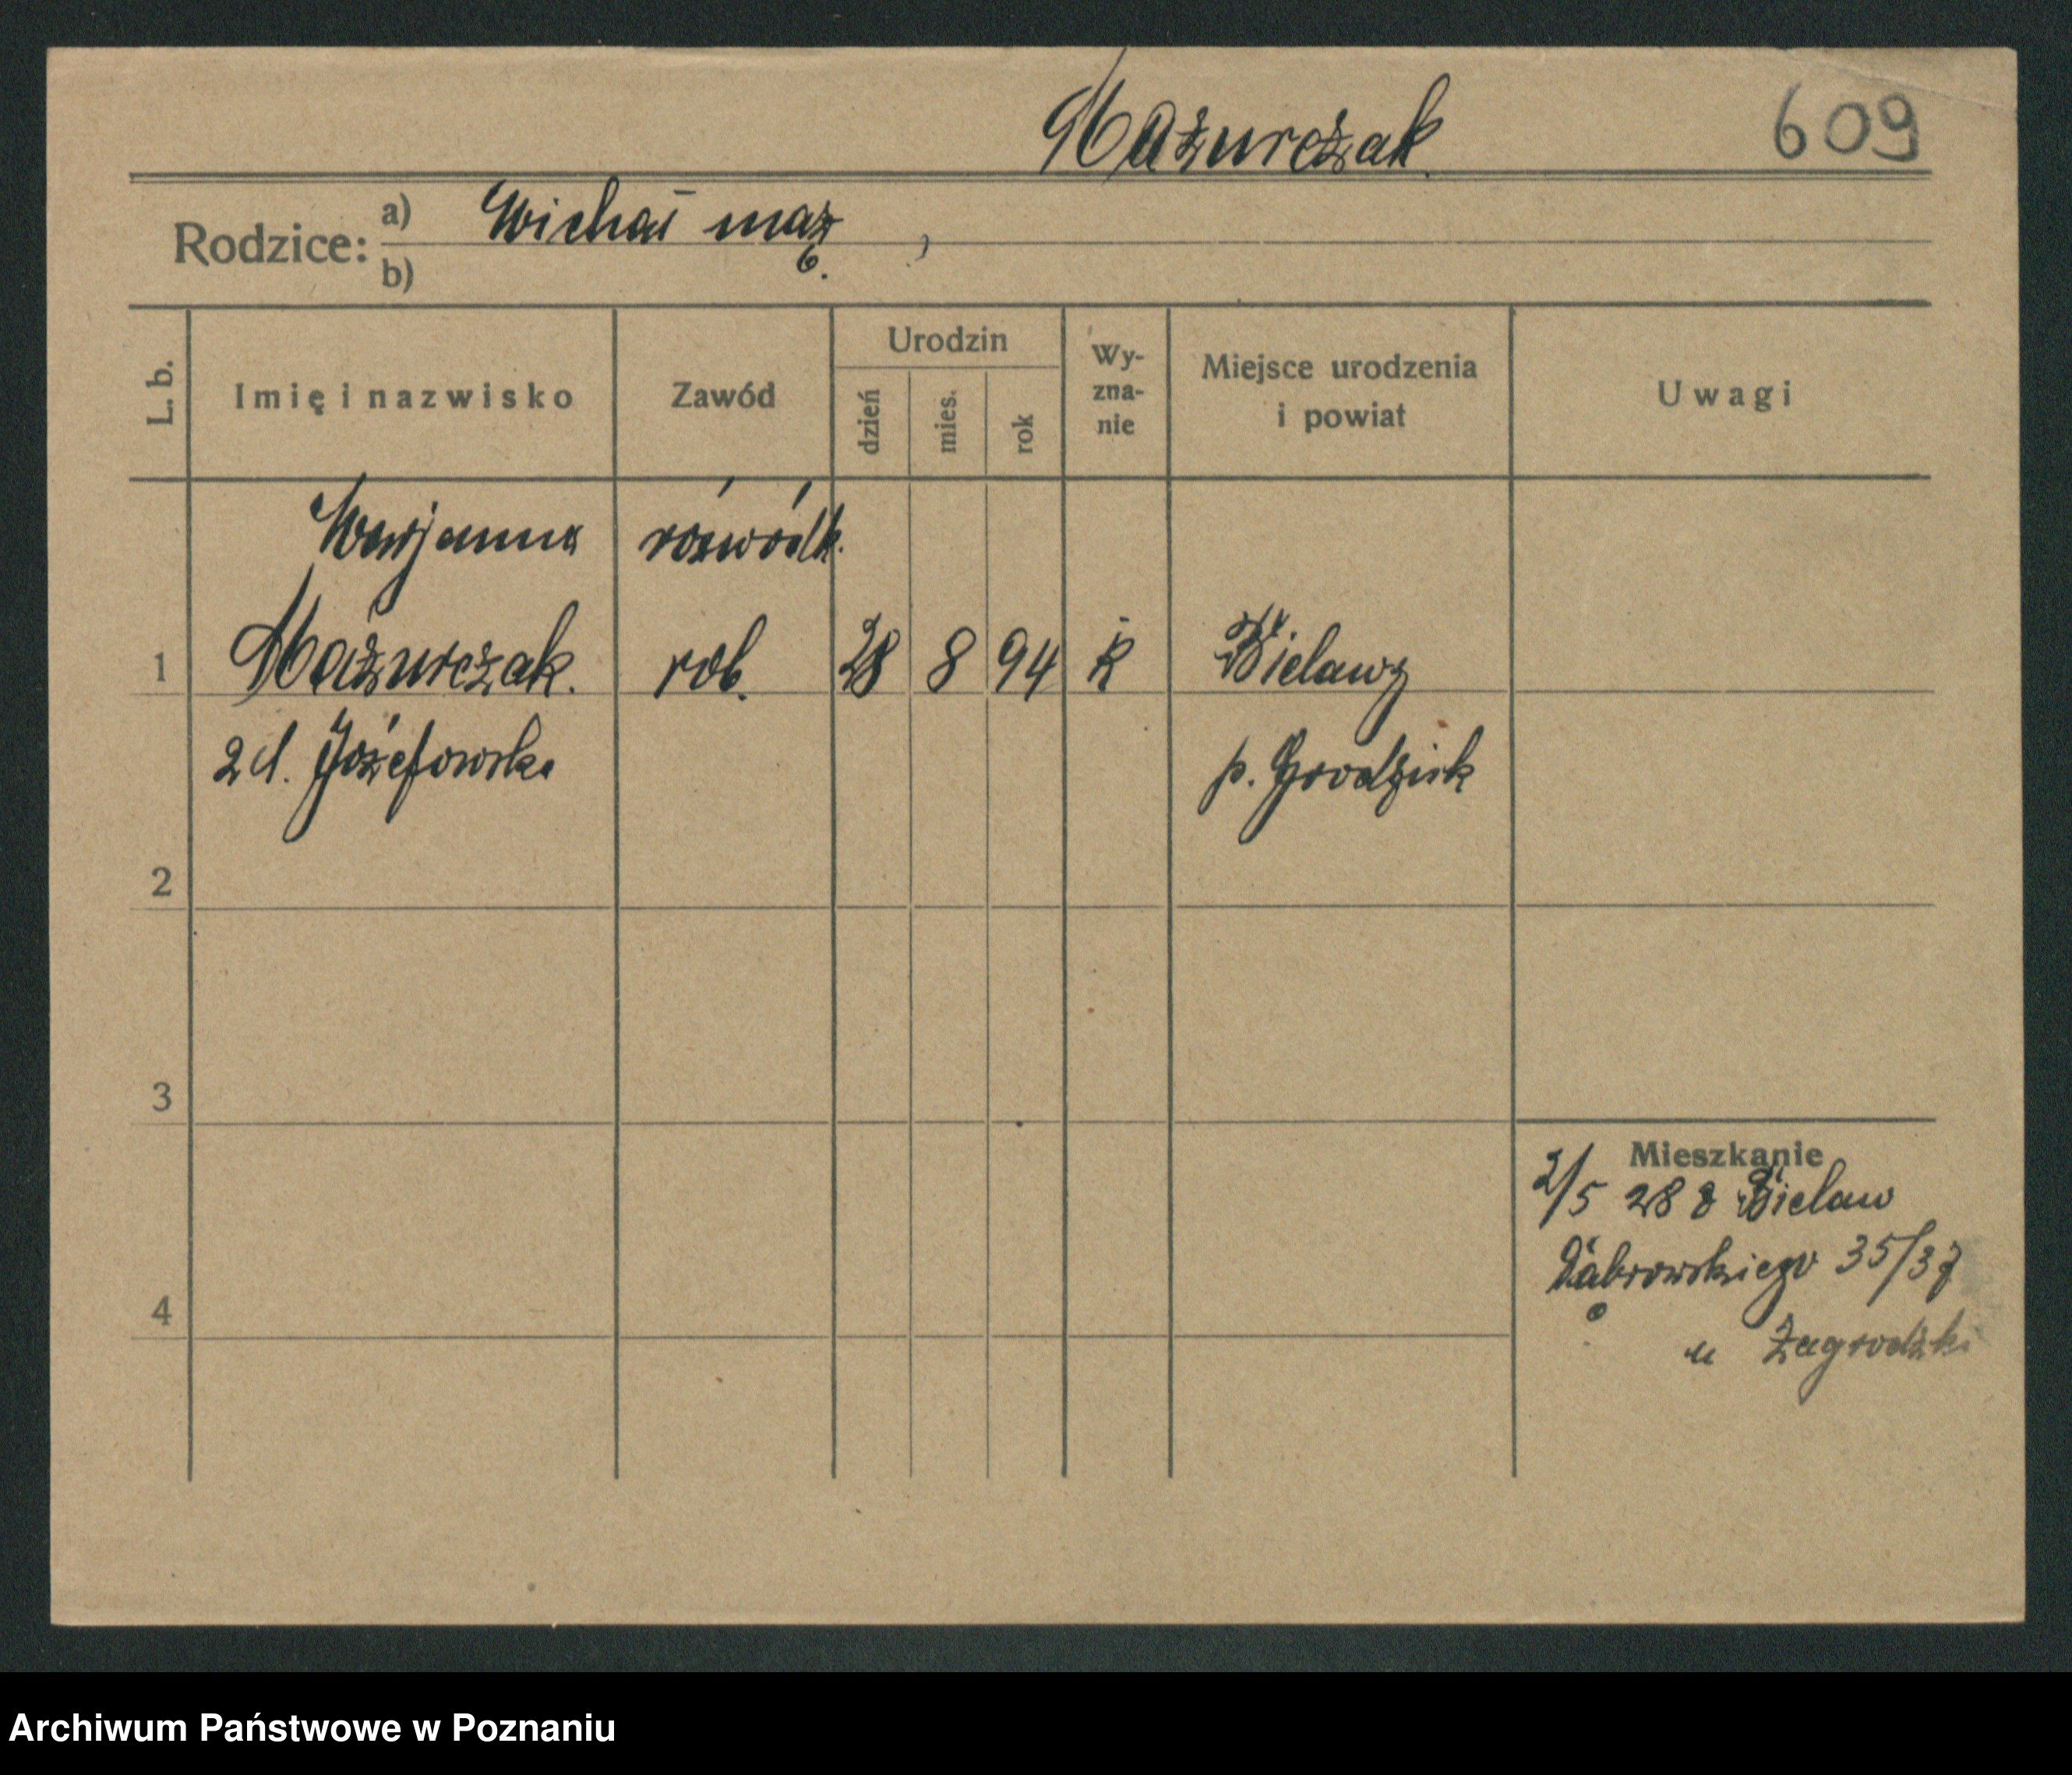 Mazurczak 609
Rodzice: a) Michał mąż
b)
L. b. Imię i nazwisko Zawód Urodzin dzień mies. rok Wyznanie Miejsce urodzenia i powiat Uwagi
Marjanna rozwódk.
1 Mazurczak. rob. 28 8 94 k Bielawy
2 d. Józefowska p. Grodzisk
2
3
Mieszkanie
2/5 28 z Bielaw
Dąbrowskiego 35/37
4
u Zagrodzki
Archiwum Państwowe w Poznaniu